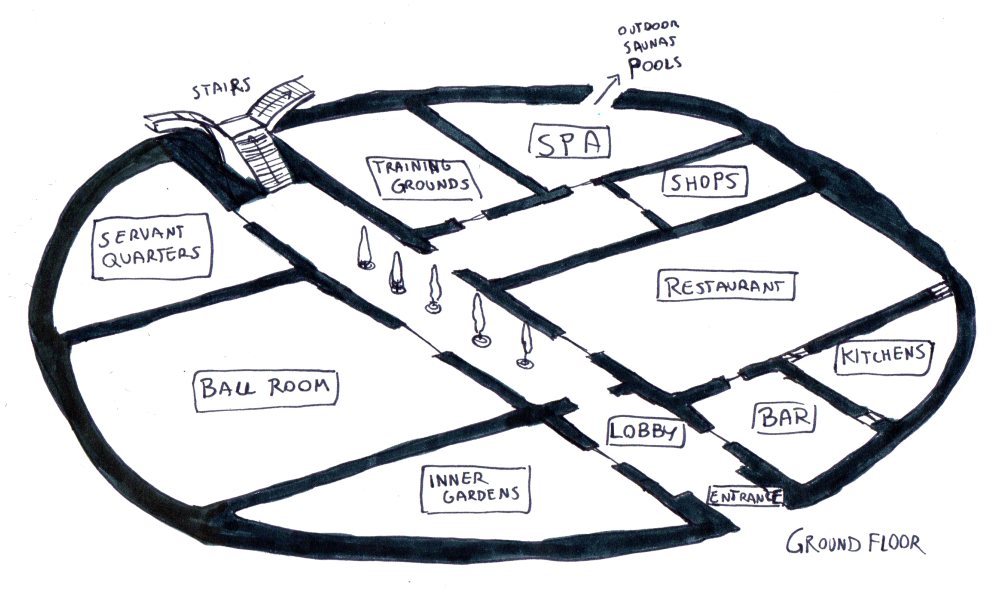 OUTDOOR
SAUNAS
POOLS
STAIRS
SPA
TRAINING
GROUNDS
SHOPS
SERVANT
QUARTERS
RESTAURANT
KITCHENS
BALL ROOM
BAR
LOBBY
INNER
GARDENS
ENTRANCE
GROUND FLOOR